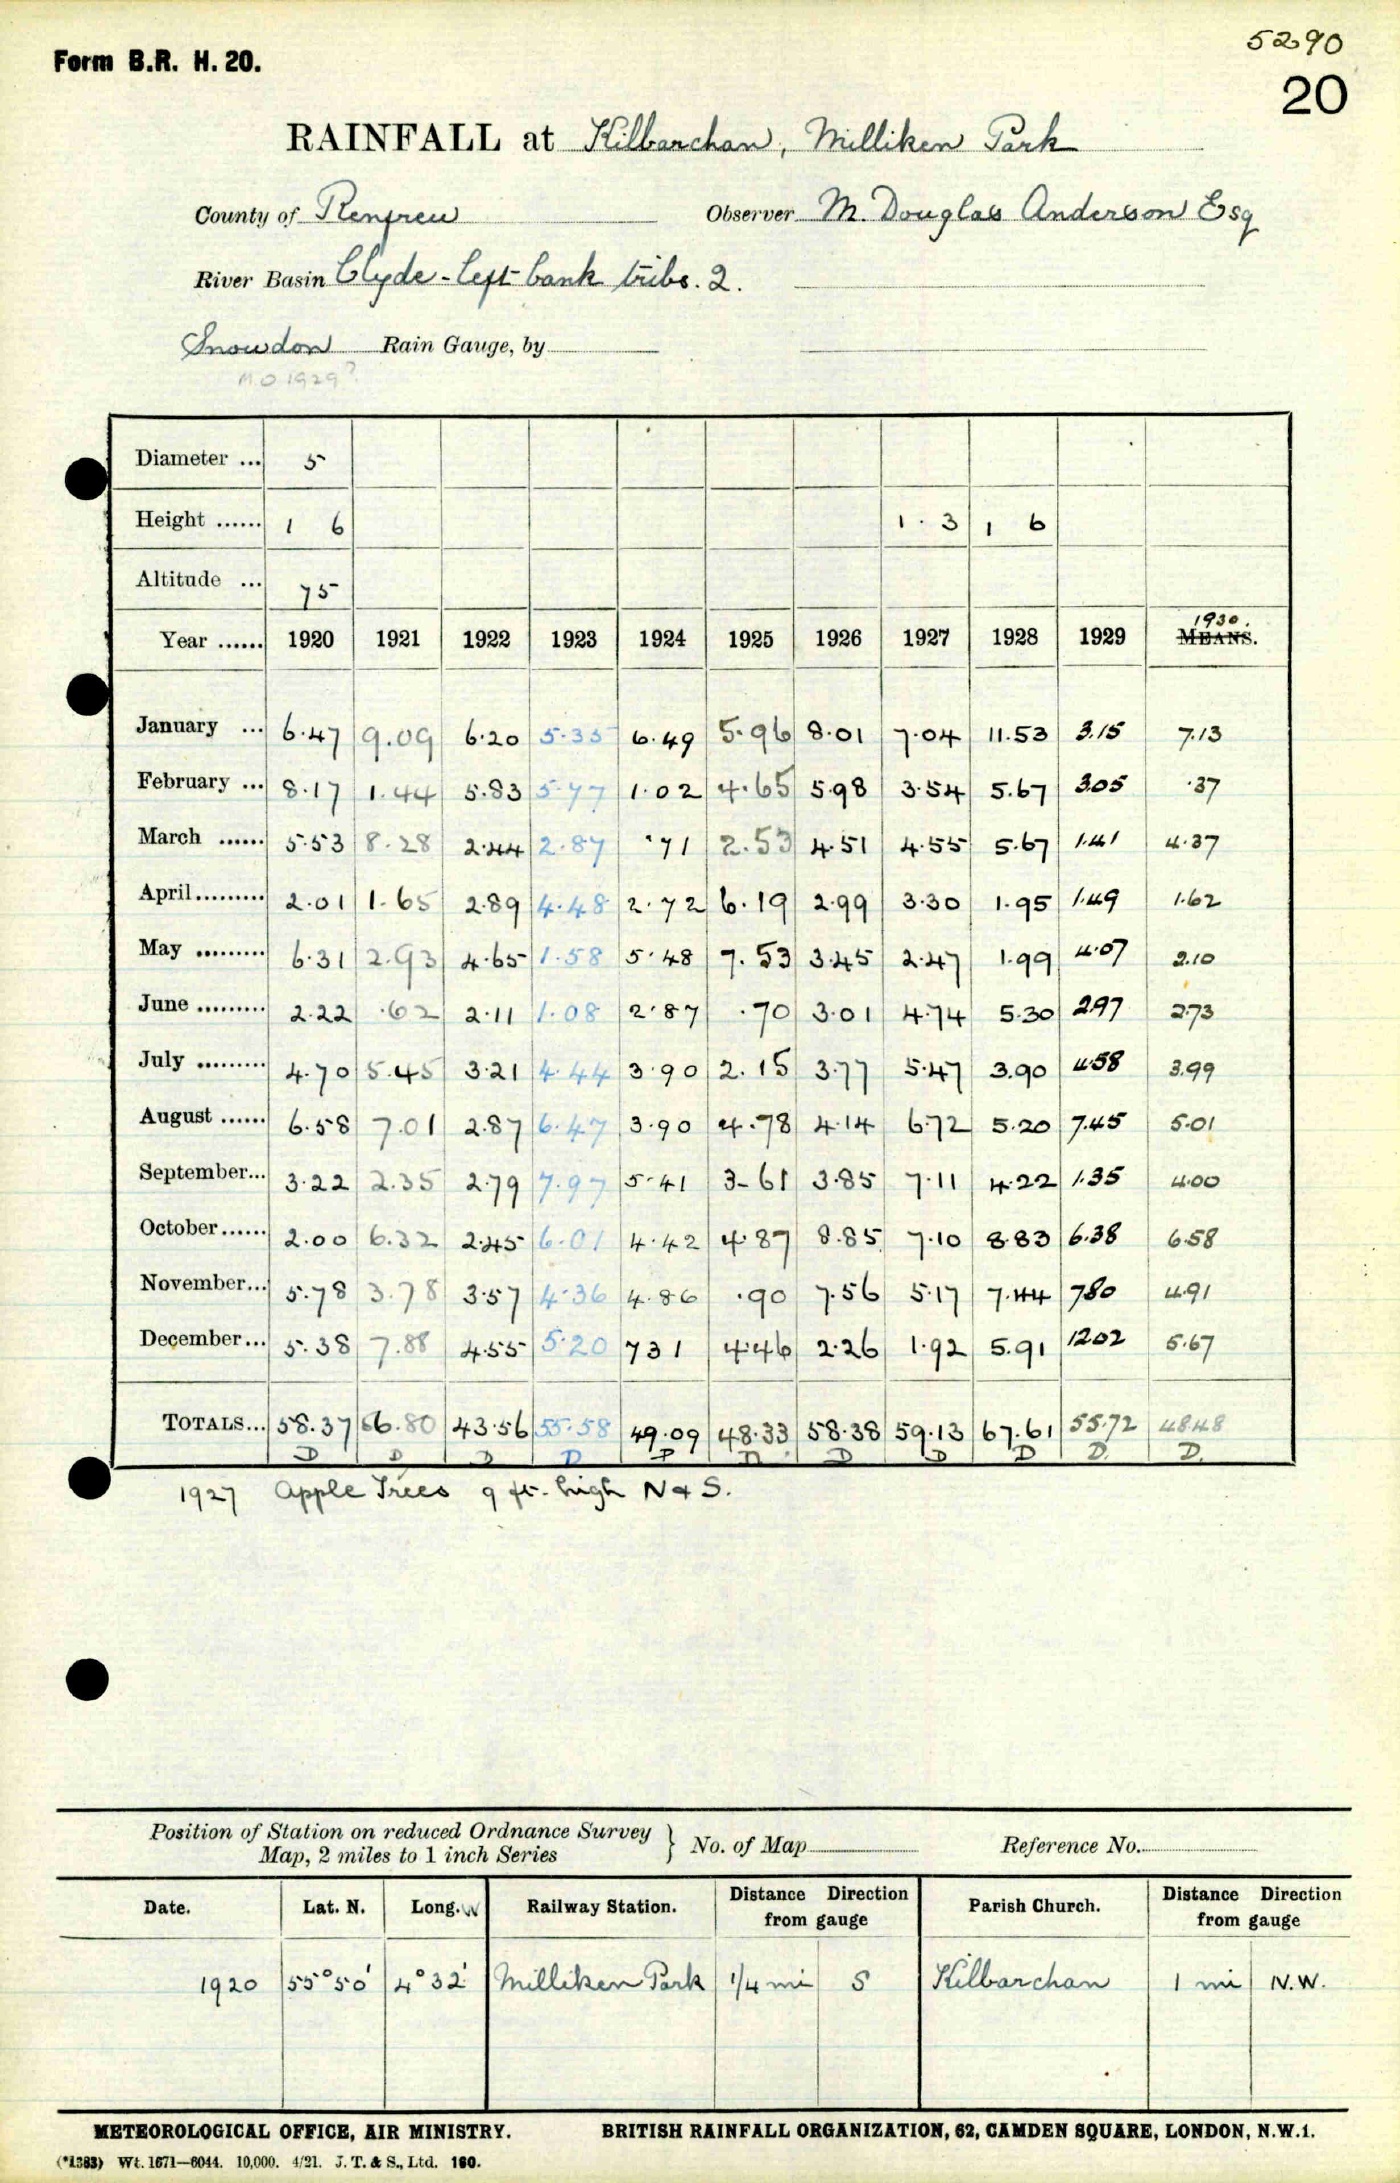 5290
Form B.R. H. 20.
20
RAINFALL at Kilbarchan, Milliken Park
County of Renfrew Observer M. Douglas Anderson Esq
River Basin Clyde - left bank tribs. 2.
Snowdon Rain Gauge, by
M O 1929?
Diameter ... 5
Height ...... 1 6 1 . 3 1 6
Altitude ... 75
1930.
Year ...... 1920 1921 1922 1923 1924 1925 1926 1927 1928 1929 MEANS.
January ... 6.47 9.09 6.20 5.35 6.49 5.96 8.01 7.04 11.53 3.15 7.13
February ... 8.17 1.44 5.83 5.77 1.02 4.65 5.98 3.54 5.67 3.05 .37
March ...... 5.53 8.28 2.44 2.87 .71 2.53 4.51 4.55 5.67 1.41 4.37
April......... 2.01 1.65 2.89 4.48 2.72 6.19 2.99 3.30 1.95 1.49 1.62
May ......... 6.31 2.93 4.65 1.58 5.48 7.53 3.45 2.47 1.99 4.07 2.10
June ......... 2.22 .62 2.11 1.08 2.87 .70 3.01 4.74 5.30 2.97 2.73
July ......... 4.70 5.45 3.21 4.44 3.90 2.15 3.77 5.47 3.90 4.58 3.99
August ...... 6.58 7.01 2.87 6.47 3.90 4.78 4.14 6.72 5.20 7.45 5.01
September... 3.22 2.35 2.79 7.97 5.41 3-61 3.85 7.11 4.22 1.35 4.00
October...... 2.00 6.32 2.45 6.01 4.42 4.87 8.85 7.10 8.83 6.38 6.58
November... 5.78 3.78 3.57 4.36 4.86 .90 7.56 5.17 7.44 780 4.91
December... 5.38 7.88 4.55 5.20 731 4.46 2.26 1.92 5.91 1202 5.67
TOTALS... 58.37 56.80 43.56 55.58 49.09 48.33 58.38 59.13 67.61 55.72 48.48
D D D D D D D D D D. D.
1927 Apple Trees 9 ft. high N & S.
Position of Station on reduced Ordnance Survey
Map, 2 miles to 1 inch Series } No. of Map Reference No.
Date. Lat. N. Long. W Railway Station. Distance Direction from gauge Parish Church. Distance Direction from gauge
1920 55°50' 4°32' Milliken Park 1/4 mi S Kilbarchan 1 mi N.W.
METEOROLOGICAL OFFICE, AIR MINISTRY. BRITISH RAINFALL ORGANIZATION, 62, CAMDEN SQUARE, LONDON, N.W.1.
(*1383) Wt. 1671—6044. 10,000. 4/21. J. T. & S., Ltd. 160.